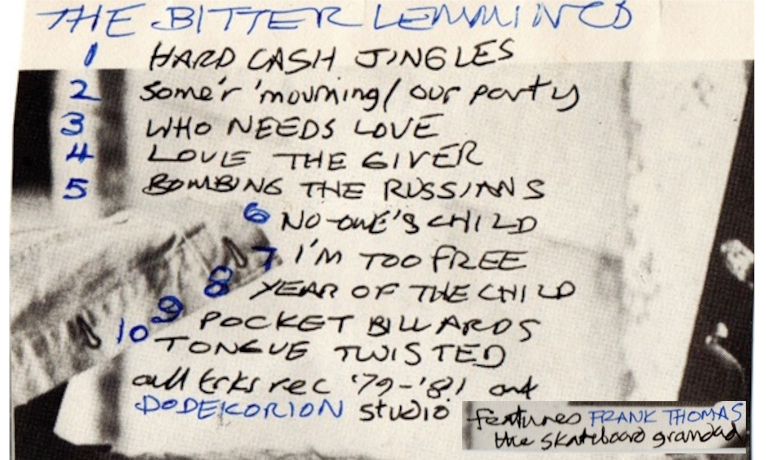 THE BITTER LEMMINGS
1 HARD CASH JINGLES
2 some'r 'mourning / our party
3 WHO NEEDS LOVE
4 LOVE THE GIVER
5 BOMBING THE RUSSIANS
6 NO-ONE'S CHILD
7 I'M TOO FREE
8 YEAR OF THE CHILD
9 POCKET BILLARDS
10 TONGUE TWISTED
all trks rec '79-'81 out
DODEKORION studio
features FRANK THOMAS
the skateboard grandad